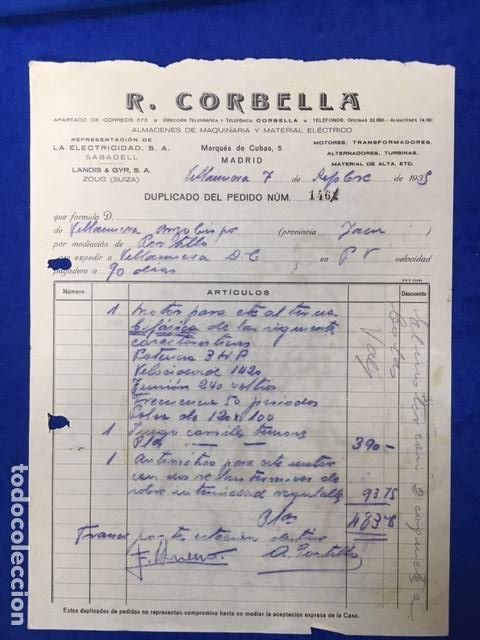 R. CORBELLA
APARTADO DE CORREOS 575 DIRECCIÓN TELEGRÁFICA Y TELEFÓNICA CORBELLA TELÉFONOS: OFICINAS 22.850 - ALMACENES 74.061
ALMACENES DE MAQUINARIA Y MATERIAL ELÉCTRICO
REPRESENTACIÓN DE
LA ELECTRICIDAD, S. A.
SABADELL
LANDIS & GYR, S. A.
ZOUG (SUIZA)
Marqués de Cubas, 5
MADRID
MOTORES, TRANSFORMADORES,
ALTERNADORES, TURBINAS,
MATERIAL DE ALTA, ETC.
7 de de 1935
DUPLICADO DEL PEDIDO NÚM. 1462
que formula D.
de (provincia Jaen )
por mediación de Portillo
para expedir a en P V velocidad
pagadero a 90 dias
Número ARTÍCULOS Descuento
1 Motor para cte alterna
bifásica de las siguientes
caracteristicas
Potencia 3 HP
Velocidad 1420
Tensión 240 voltios
Frecuencia 50 periodos
Polea de 120 x 100
1 Juego carriles tensores
390-
1 Automático para este motor
con dos relais termicos de
sobre intensidad regulable 93 75
Ptas 483 75
A. Portillo
Estos duplicados de pedidos no representan compromiso hasta no mediar la aceptación expresa de la Casa.
todocoleccion